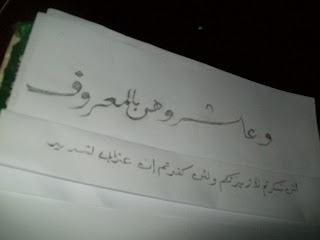 وعاشروهن بالمعروف
لئن شكرتم لأزيدنكم ولئن كفرتم إن عذابي لشديد